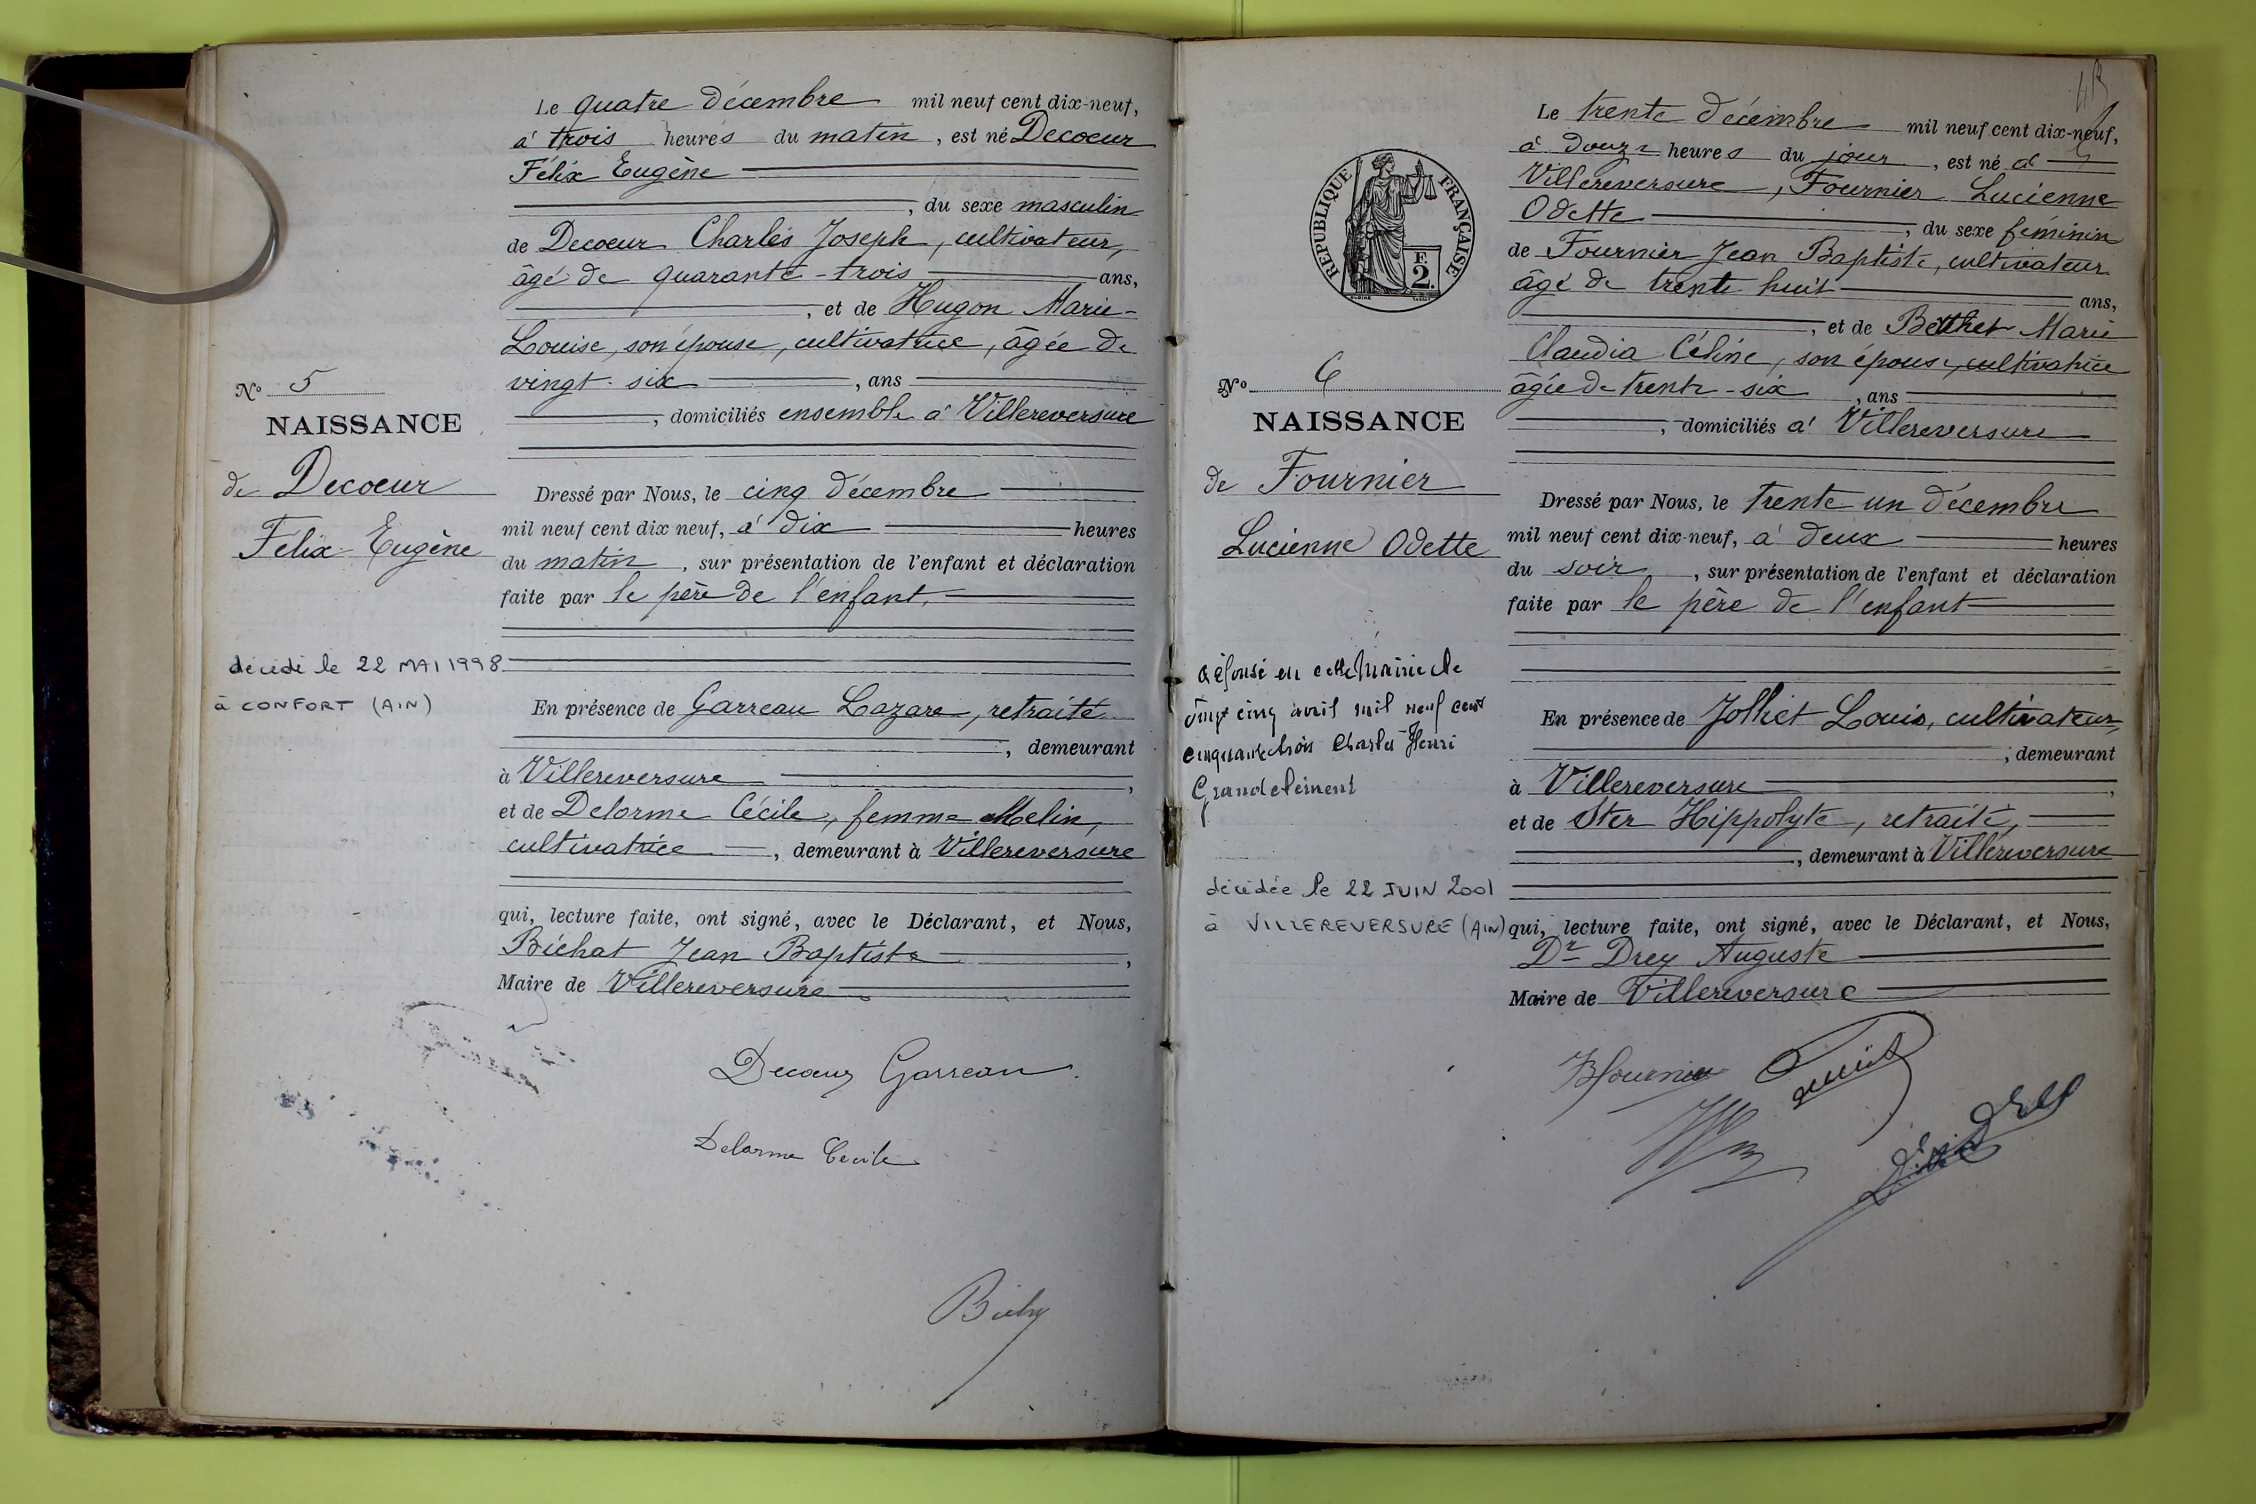 Le quatre décembre mil neuf cent dix-neuf,
à trois heures du matin, est né Decoeur
Félix Eugène
, du sexe masculin
de Decoeur Charles Joseph, cultivateur,
âgé de quarante-trois ans,
, et de Hugon Marie-
Louise, son épouse, cultivatrice, âgée de
vingt-six, ans
, domiciliés ensemble à Villereversure
No 5
NAISSANCE
de Decoeur
Félix Eugène
Dressé par Nous, le cinq décembre
mil neuf cent dix neuf, à dix heures
du matin, sur présentation de l'enfant et déclaration
faite par le père de l'enfant,
décédé le 22 MAI 1998
à CONFORT (AIN)
En présence de Garreau Lazare, retraité
, demeurant
à Villereversure,
et de Delorme Cécile, femme Melin,
cultivatrice, demeurant à Villereversure
qui, lecture faite, ont signé, avec le Déclarant, et Nous,
Bichat Jean Baptiste,
Maire de Villereversure
Decoeur Garreau
Delorme Cécile
Le trente décembre mil neuf cent dix-neuf,
à douze heures du jour, est né à
Villereversure, Fournier Lucienne
Odette, du sexe féminin
de Fournier Jean Baptiste, cultivateur
âgé de trente huit ans,
, et de Bethet Marie
Claudia Céline, son épouse, cultivatrice
âgée de trente-six, ans
, domiciliés à Villereversure
RÉPUBLIQUE FRANÇAISE
F.
2.
No 6
NAISSANCE
de Fournier
Lucienne Odette
Dressé par Nous, le trente un décembre
mil neuf cent dix-neuf, à deux heures
du soir, sur présentation de l'enfant et déclaration
faite par le père de l'enfant
a épousé en cette mairie le
vingt cinq avril mil neuf cent
cinquante trois Charles Henri
Grandclément
décédée le 22 JUIN 2001
à VILLEREVERSURE (AIN)
En présence de Jolliet Louis, cultivateur,
, demeurant
à Villereversure,
et de Ster Hippolyte, retraité,
, demeurant à Villereversure
qui, lecture faite, ont signé, avec le Déclarant, et Nous,
Dr Drey Auguste
Maire de Villereversure
JBFournier